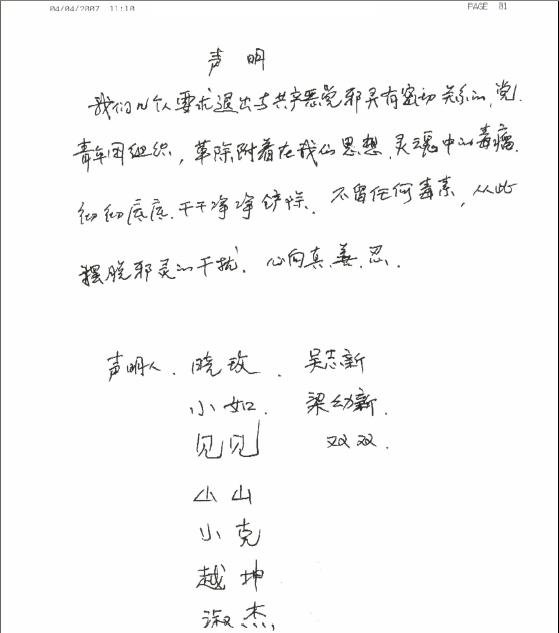 04/04/2007 11:10 PAGE 01
声明
我们几个人要求退出与共产恶党邪灵有密切关系的.党.
青年团组织，革除附着在我们思想.灵魂中的毒瘤.
彻彻底底.干干净净铲除.不留任何毒素，从此
摆脱邪灵的干扰.心向真.善.忍.
声明人.晓玫.吴志新
小如.梁幼新.
见见 双双.
小山
小克
越坤
淑杰.